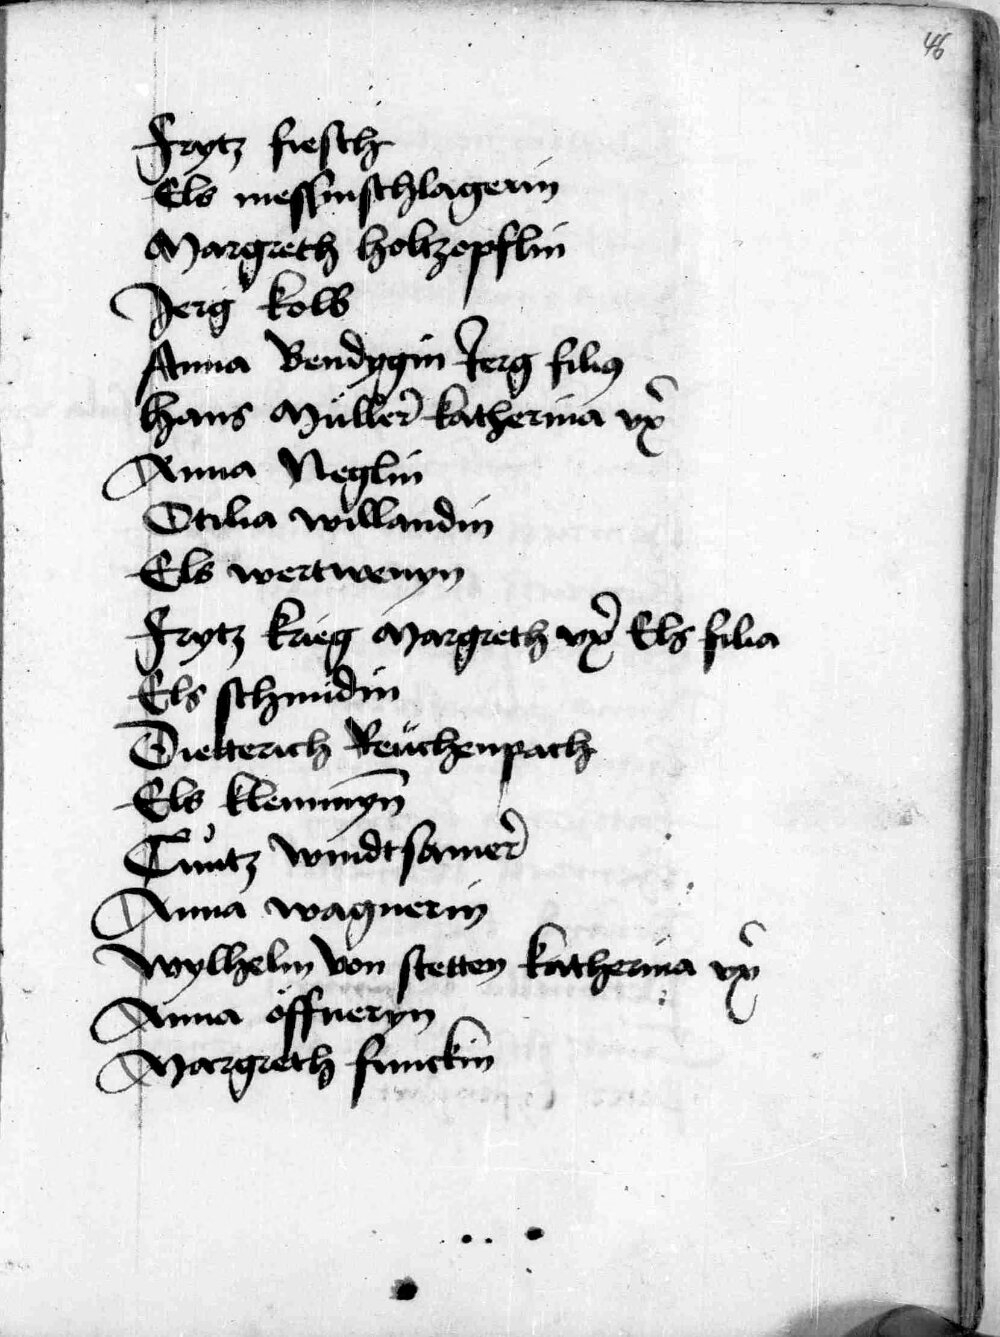 46
Frytz fiesch
Els messinschlagerin
Margreth holtzopflin
Jerg kolb
Anna Bendygin Jerg filiꝯ
hans Müller katherina vx̄
Anna Neglin
Otilia willandin
Els wertwenyn
Frytz krieg Margreth vx̄ Els filia
Els schmidin
Dietterich Reüchenpach
Els klemmyn̄
Cuͦntz windtsamer
Anna wagnerin
wylhelm von stetten katherina vx̄
Anna öffneryn
Margreth funckin